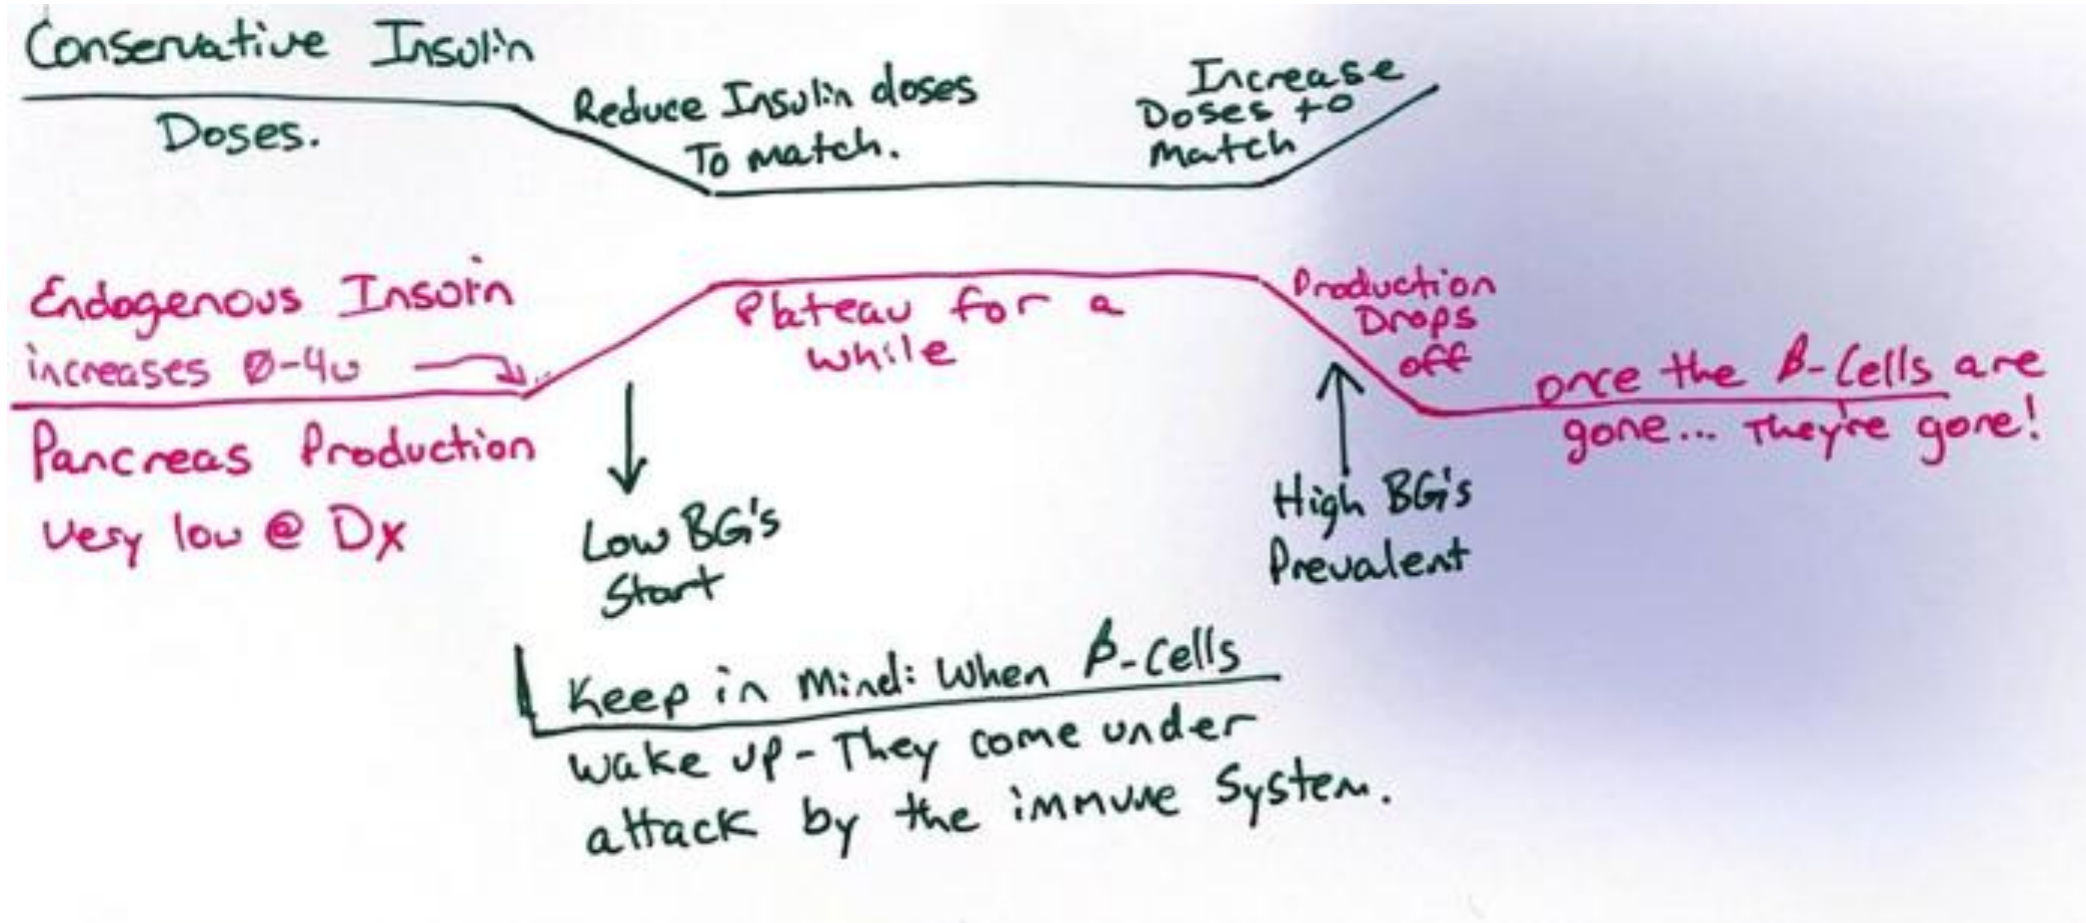 Conservative Insulin
Doses.
Reduce Insulin doses
To match.
Increase
Doses to
Match
Endogenous Insulin
increases 0-4u
Pancreas Production
very low @ Dx
Plateau for a
while
Production
Drops
off
once the β-Cells are
gone... They're gone!
Low BG's
Start
High BG's
Prevalent
Keep in Mind: When β-Cells
wake up - They come under
attack by the immune System.